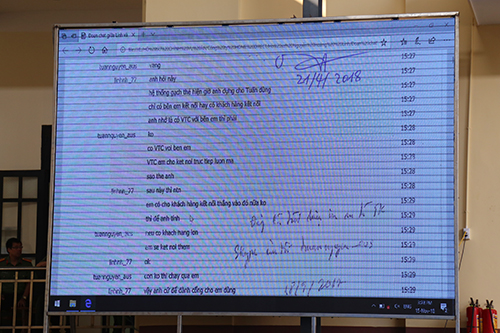 Đoạn chat giữa Linh và
tuannguyen_aus vang 15:27
linhnb_77 anh hỏi này 15:27
hệ thống gạch thẻ hiện giờ anh dựng cho Tuấn dùng 15:27
chỉ có bên em kết nối hay có khách hàng kết nối 15:27
anh nhớ là có VTC với bên em thì phải 15:27
tuannguyen_aus ko 15:28
co VTC voi ben em 15:28
VTC em cho ket noi truc tiep luon ma 15:28
sao the anh 15:28
linhnb_77 sau này thì nên 15:28
em có cho khách hàng kết nối thẳng vào đó nữa ko 15:29
thì để anh tính 15:29
tuannguyen_aus neu co khach hang lon 15:29
em se ket noi them 15:29
linhnb_77 ok 15:29
tuannguyen_aus con ko thi chay qua em 15:29
linhnb_77 vậy anh cứ để đánh cổng cho em dùng 15:29
21/4/2018
ENG